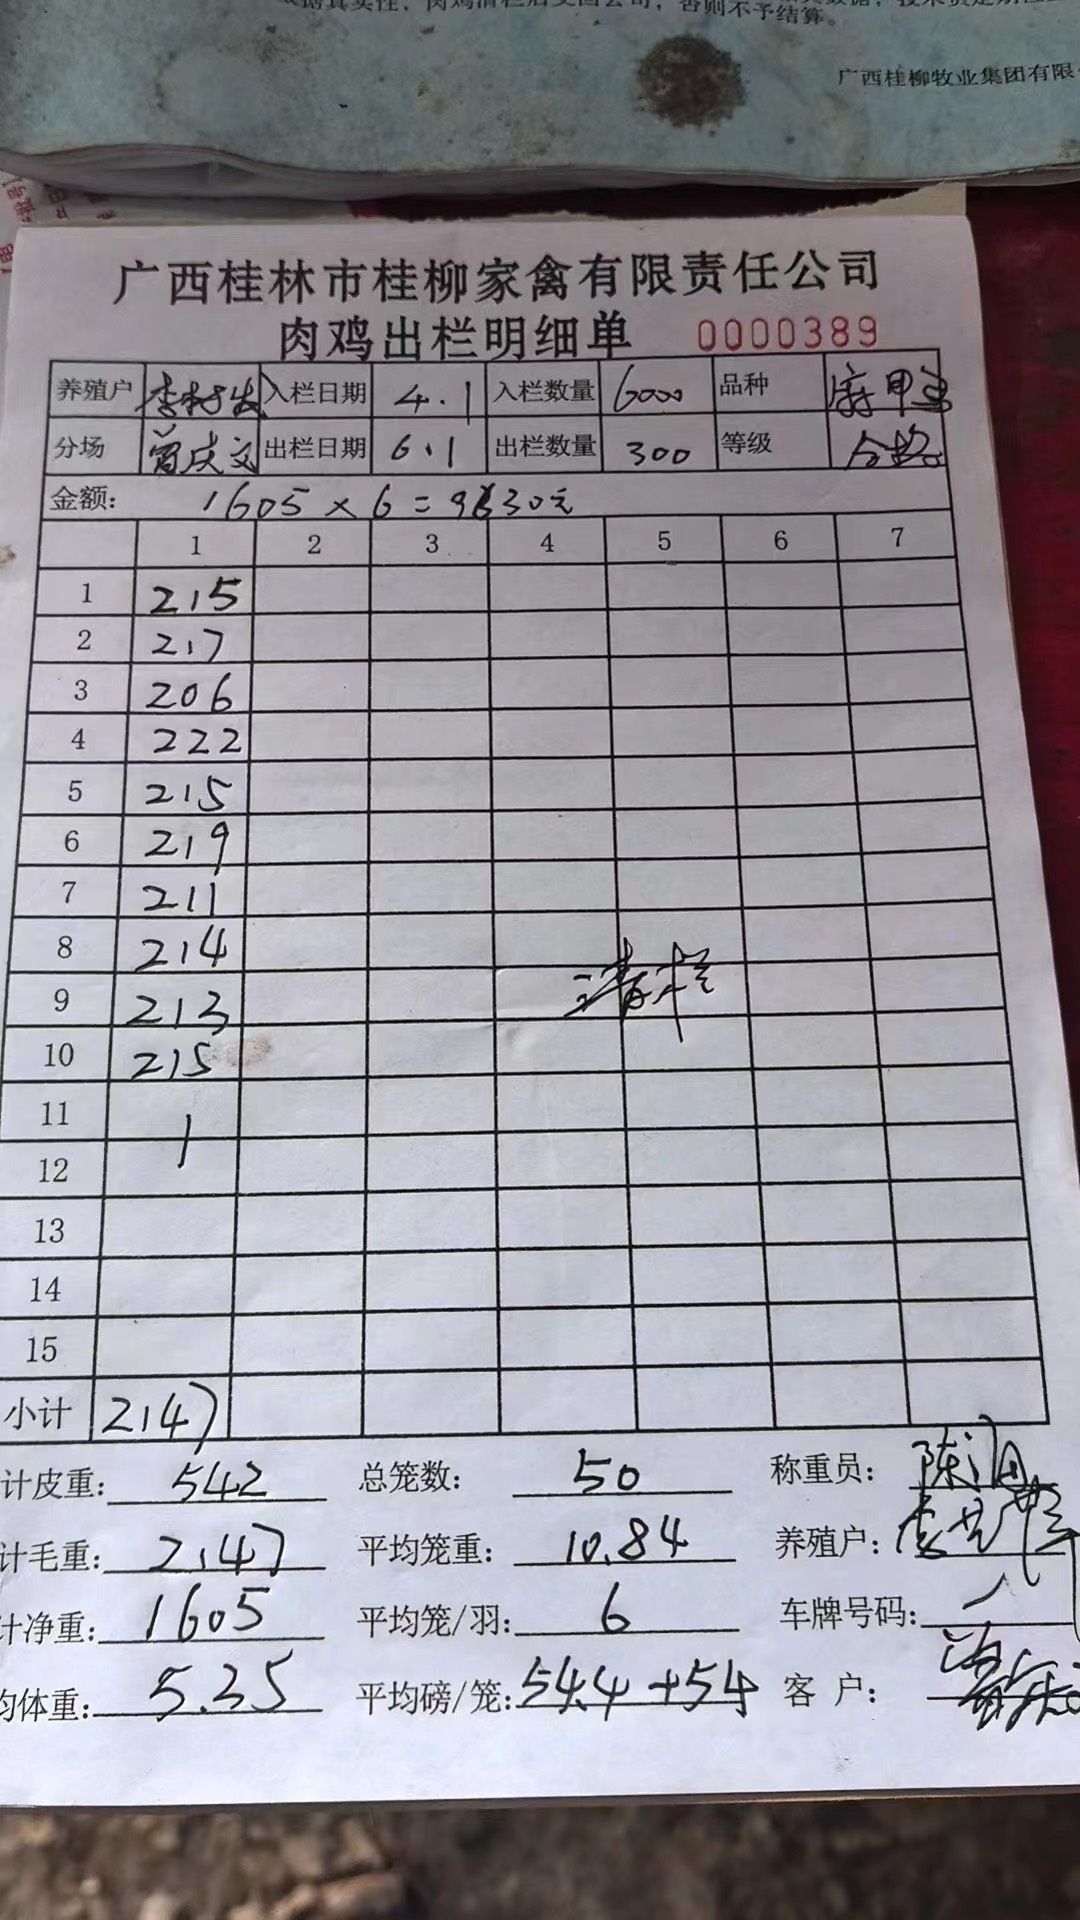 否则不予结算。
广西桂柳牧业集团有限
广西桂林市桂柳家禽有限责任公司
肉鸡出栏明细单 0000389
养殖户 入栏日期 4.1 入栏数量 6000 品种
分场 曾庆文 出栏日期 6.1 出栏数量 300 等级 合格
金额: 1605×6=9630元
1 2 3 4 5 6 7
1 215
2 217
3 206
4 222
5 215
6 219
7 211
8 214
9 213
10 215
清栏
11
12
13
14
15
小计 2147
计皮重: 542 总笼数: 50 称重员:
计毛重: 2147 平均笼重: 10.84 养殖户:
计净重: 1605 平均笼/羽: 6 车牌号码:
均体重: 5.35 平均磅/笼: 54.4+54 客户: